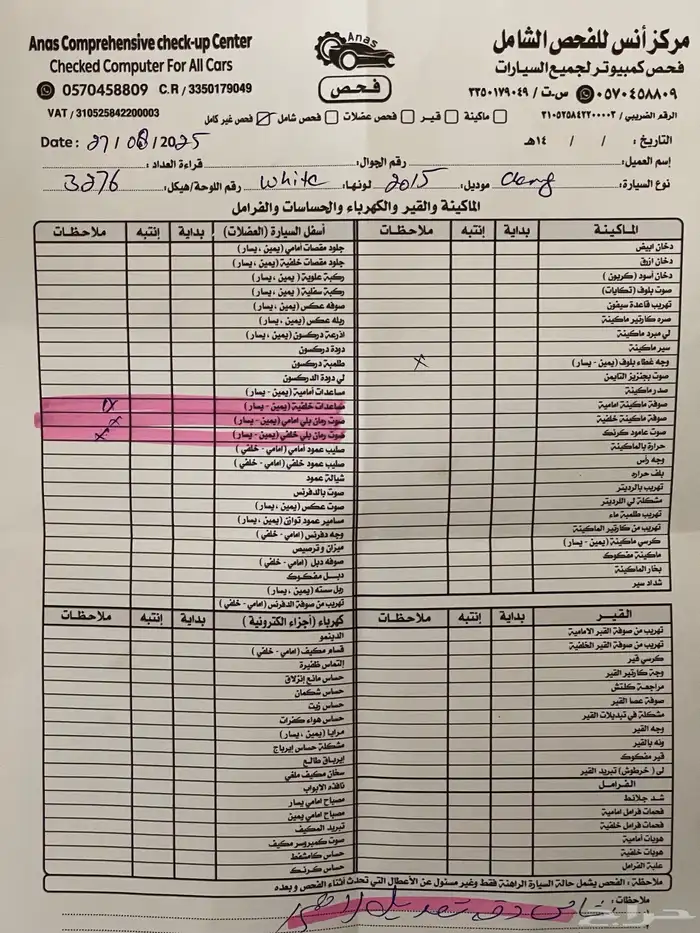 Anas Comprehensive check-up Center
Checked Computer For All Cars
0570458809 C.R / 3350179049
VAT / 310525842200003
Anas
فحص
مركز أنس للفحص الشامل
فحص كمبيوتر لجميع السيارات
٠٥٧٠٤٥٨٨٠٩ س.ت / ٣٣٥٠١٧٩٠٤٩
الرقم الضريبي / ٣١٠٥٢٥٨٤٢٢٠٠٠٠٣
ماكينة قير فحص عضلات فحص شامل فحص غير كامل
التاريخ : / / ١٤هـ
Date : 27/08/2025
إسم العميل: رقم الجوال: قراءة العداد:
نوع السيارة: موديل: 2015 لونها: White رقم اللوحة/هيكل: 3276
الماكينة والقير والكهرباء والحساسات والفرامل
الماكينة بداية إنتبه ملاحظات
دخان ابيض
دخان ازرق
دخان أسود (كربون)
صوت بلوف (تكايات)
تهريب قاعدة سيفون
صره كارتير ماكينة
لي مبرد ماكينة
سير ماكينة
وجه غطاء بلوف (يمين - يسار) x
صوت بجنزير التايمن
صدر ماكينة
صوفة ماكينة امامية
صوفة ماكينة خلفية
صوت عامود كرنك
حرارة بالماكينة
وجه رأس
بلف حراره
تهريب بالرديتر
مشكلة لي اللرديتر
تهريب طلمبة ماء
تهريب من كارتير الماكينة
كرسي ماكينة (يمين - يسار)
ماكينة مفكوك
بخار الماكينة
شداد سير
القير بداية إنتبه ملاحظات
تهريب من صوفة القير الامامية
تهريب من صوفة القير الخلفية
كرسي قير
وجة كارتير القير
مراجعة كلتش
صوفة عصا القير
مشكلة في تبديلات القير
وجه القير
ونه بالقير
قير مفكوك
لي (خرطوش) تبريد القير
الفرامل
شد جلانط
فحمات فرامل امامية
فحمات فرامل خلفية
هوبات أمامية
هوبات خلفية
علبة الفرامل
أسفل السيارة (العضلات) بداية إنتبه ملاحظات
جلود مقصات امامي (يمين ، يسار)
جلود مقصات خلفية (يمين ، يسار)
ركبة علوية (يمين ، يسار)
ركبة سفلية (يمين ، يسار)
صوفه عكس (يمين ، يسار)
ربله عكس (يمين ، يسار)
اذرعة دركسون (يمين ، يسار)
دودة دركسون
طلمبة دركسون
لي دودة الدركسون
مساعدات أمامية (يمين - يسار)
مساعدات خلفية (يمين - يسار)
صوت رمان بلي امامي (يمين - يسار)
صوت رمان بلي خلفي (يمين - يسار)
صليب عمود أمامي (امامي - خلفي)
صليب عمود خلفي (امامي - خلفي)
شيالة عمود
صوت بالدفرنس
صوت عكس (يمين ، يسار)
مسامير عمود توازن (يمين ، يسار)
وجه دفرنس (امامي - خلفي)
ميزان و ترصيص
صوفه دبل (امامي - خلفي)
دبل مفكوك
ربل سسته (يمين ، يسار)
تهريب من صوفة الدفرنس (امامي - خلفي)
كهرباء (أجزاء الكترونية) بداية إنتبه ملاحظات
الدينمو
قسام مكيف (امامي - خلفي)
إلتماس ظفيرة
حساس مانع إنزلاق
حساس شكمان
حساس زيت
حساس هواء كفرات
مرايا (يمين ، يسار)
مشكلة حساس إيرباج
إيرباق طالع
سخان مكيف ملغي
نافذه الابواب
مصباح امامي يسار
مصباح امامي يمين
تبريد المكيف
صوت كمبروسر مكيف
حساس كامشفط
حساس كرنك
ملاحظة : الفحص يشمل حالة السيارة الراهنة فقط وغير مسئول عن الأعطال التي تحدث أثناء الفحص و بعده
ملاحظات:
حراج